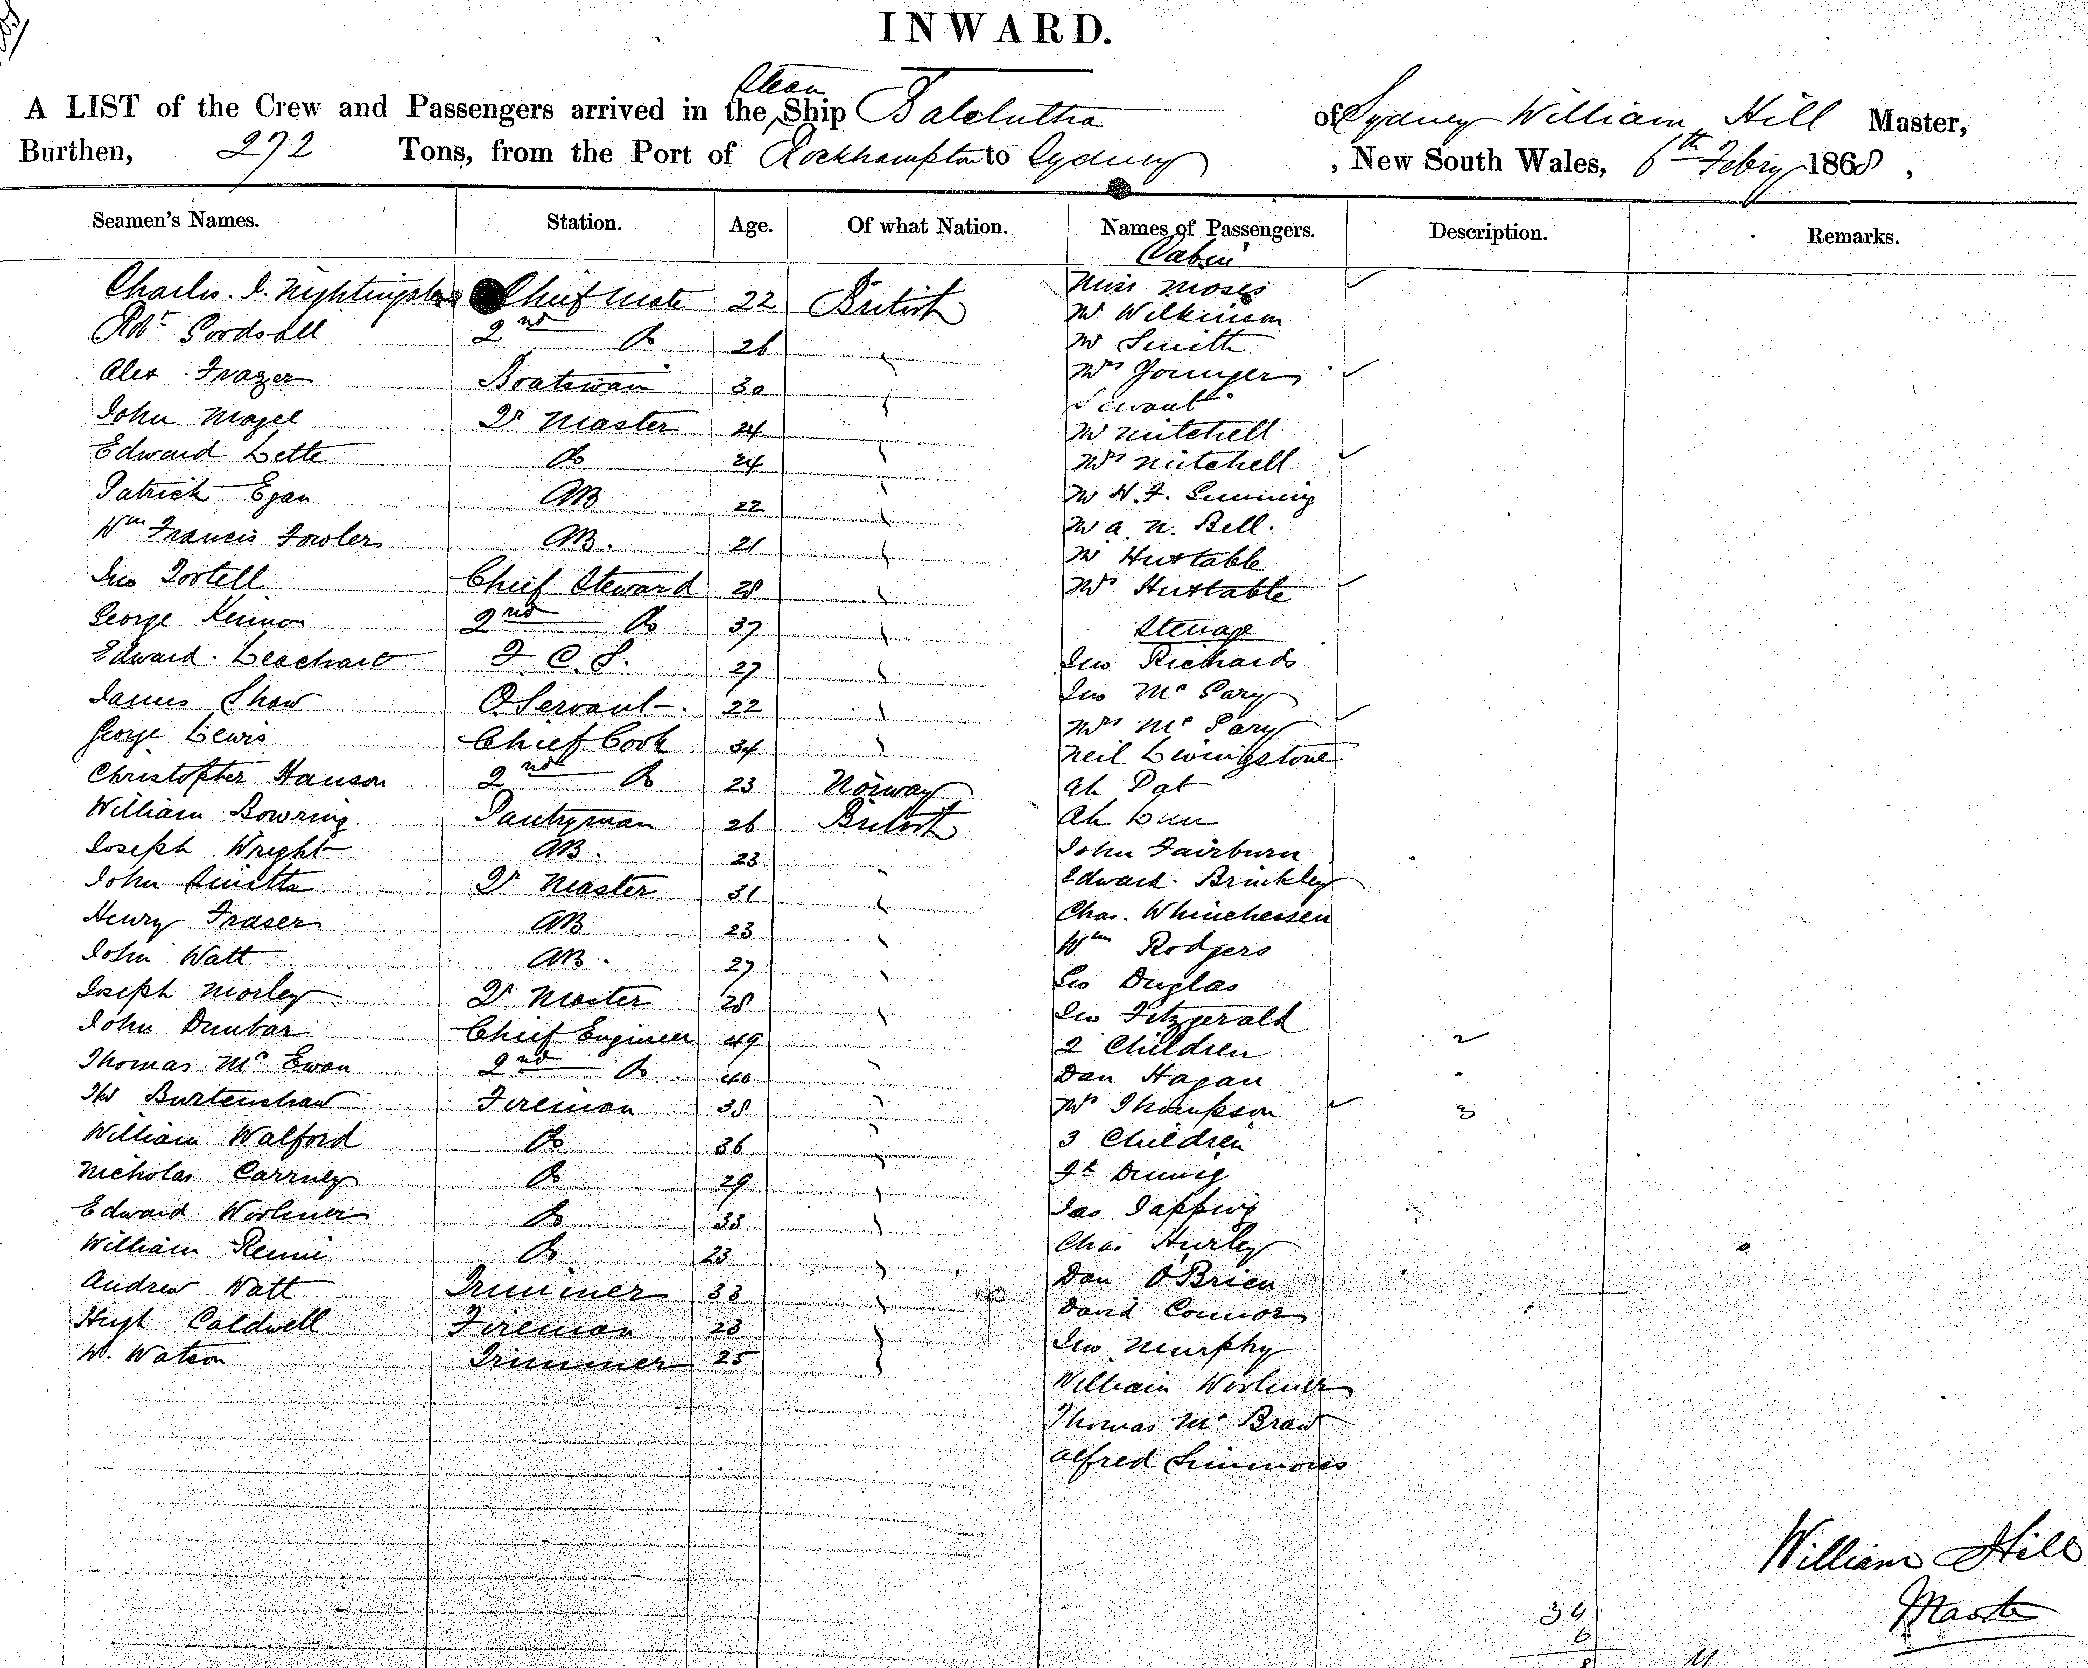 INWARD.
Steam
A LIST of the Crew and Passengers arrived in the Ship Balclutha of Sydney William Hill Master,
Burthen, 272 Tons, from the Port of Rockhampton to Sydney, New South Wales, 6th Febry 1868,
Seamen's Names. Station. Age. Of what Nation. Names of Passengers. Description. Remarks.
Cabin
Charles. I. Nightingale Chief Mate 22 British Miss Moses
Mr Wilkinson
Robt Goodsall 2nd Do 26 Mr Smith
Alex Frazer Boatswain 30 Mrs Younger
Servant
John Magee Qr Master 24 Mr Mitchell
Edward Lette Do 24 Mrs Mitchell
Patrick Egan AB 22 Mr H. F.
Mr A. N. Bell.
Wm Francis Fowler AB. 21 Mr Huxtable
Jno Tortell Chief Steward 28 Mrs Huxtable
George 2nd Do 37 Steerage
Edward. F. C. S. 27 Jno Richards
James Shaw O Servant 22 Jno Mc Gary
Mrs Mc Gary
George Lewis Chief Cook 34 Neil Livingstone
Christopher Hanson 2nd Do 23 Norway Ah Pat
William Bowring Pantryman 26 British Ah
Joseph Wright AB. 23 John Fairburn
John Smith Qr Master 31 Edward Brinkley
Henry Fraser AB 23 Chas.
John Watt AB. 27 Wm Rodgers
Joseph Morley Qr Master 28 Geo Duglas
Jno Fitzgerald
John Dunbar Chief Engineer 49 2 Children 2
Thomas Mc Ewan 2nd Do 40 Dan Hagan
Burtenshaw Fireman 38 Mrs Thompson 3
William Walford Do 36 3 Children
Nicholas Do 29
Edward Worliner Do 33 Jas
William Rennie Do 23 Chas Hurley
Andrew Watt Trimmer 33 Dan O'Brien
Hugh Caldwell Fireman 23 David Connor
W. Watson Trimmer 25 Jno Murphy
William Worliner
Thomas Mc
Alfred Simmons
William Hill
Master
34
6